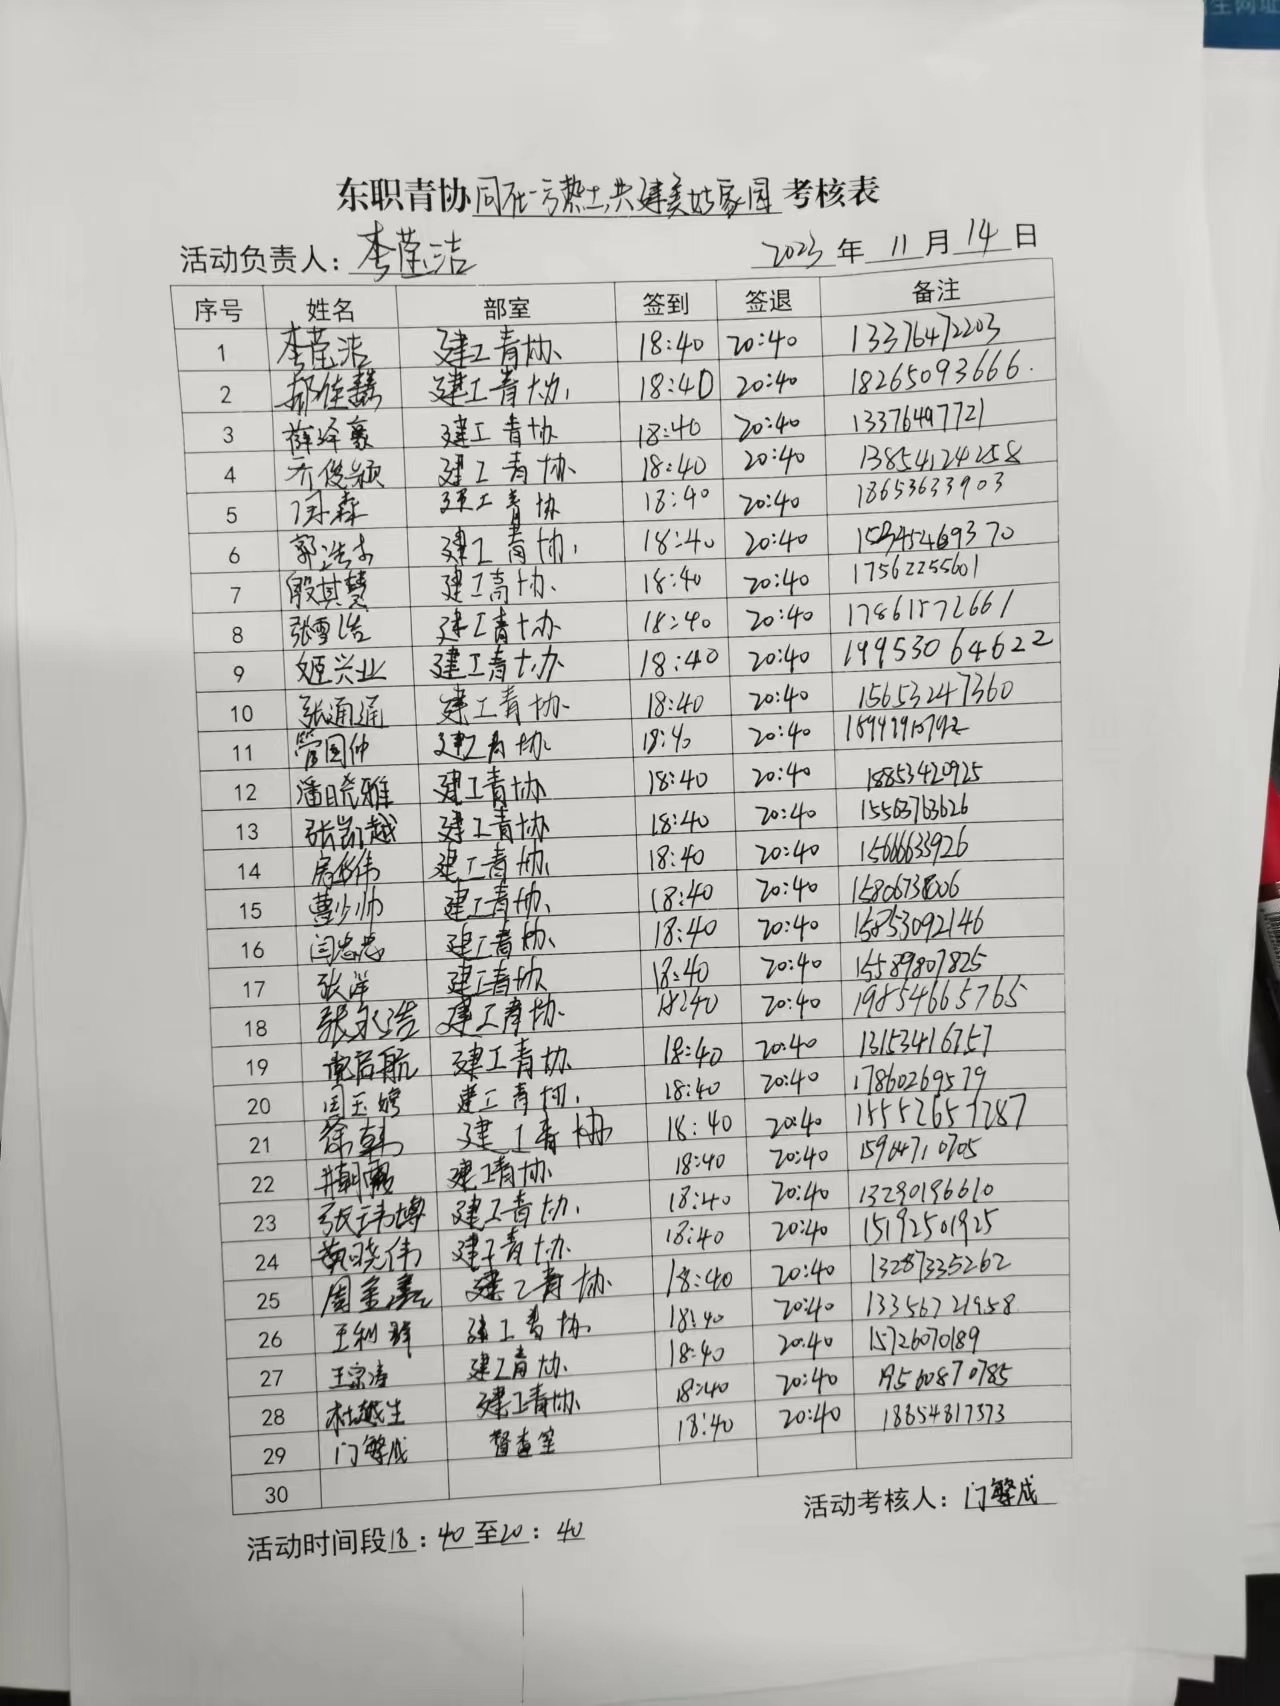 生网址
东职青协同在一方热土,共建美好家园考核表
活动负责人：李莹洁 2023年11月14日
序号 姓名 部室 签到 签退 备注
1 李莹洁 建工青协 18:40 20:40 13376472203
2 郝佳慧 建工青协 18:40 20:40 18265093666
3 薛泽豪 建工青协 18:40 20:40 13376497721
4 乔俊颖 建工青协 18:40 20:40 13854124258
5 闫森 建工青协 18:40 20:40 18653633903
6 郭浩 建工青协 18:40 20:40
7 殷其慧 建工青协 18:40 20:40 17562255601
8 张雪浩 建工青协 18:40 20:40 17861572661
9 姬兴业 建工青协 18:40 20:40 19953064622
10 张通通 建工青协 18:40 20:40 15653247360
11 管国仲 建工青协 18:40 20:40
12 潘晓雅 建工青协 18:40 20:40 18853420925
13 张凯越 建工青协 18:40 20:40 15563763626
14 建工青协 18:40 20:40 15666633926
15 曹少帅 建工青协 18:40 20:40
16 闫忠忠 建工青协 18:40 20:40 15853092146
17 张洋 建工青协 18:40 20:40 15589807825
18 张永浩 建工青协 18:40 20:40 19854665765
19 启航 建工青协 18:40 20:40 13153416757
20 周玉娉 建工青协 18:40 20:40 17860269579
21 徐韩 建工青协 18:40 20:40 15552657287
22 井朝霞 建工青协 18:40 20:40 15964710705
23 张玮博 建工青协 18:40 20:40 13290196610
24 黄晓伟 建工青协 18:40 20:40 15192501925
25 周金鑫 建工青协 18:40 20:40 13287335262
26 王利群 建工青协 18:40 20:40 13356721958
27 王宗涛 建工青协 18:40 20:40 15726070189
28 杜越生 建工青协 18:40 20:40 19560870785
29 门繁成 督查室 18:40 20:40 18654817373
30
活动时间段18：40至20：40 活动考核人：门繁成